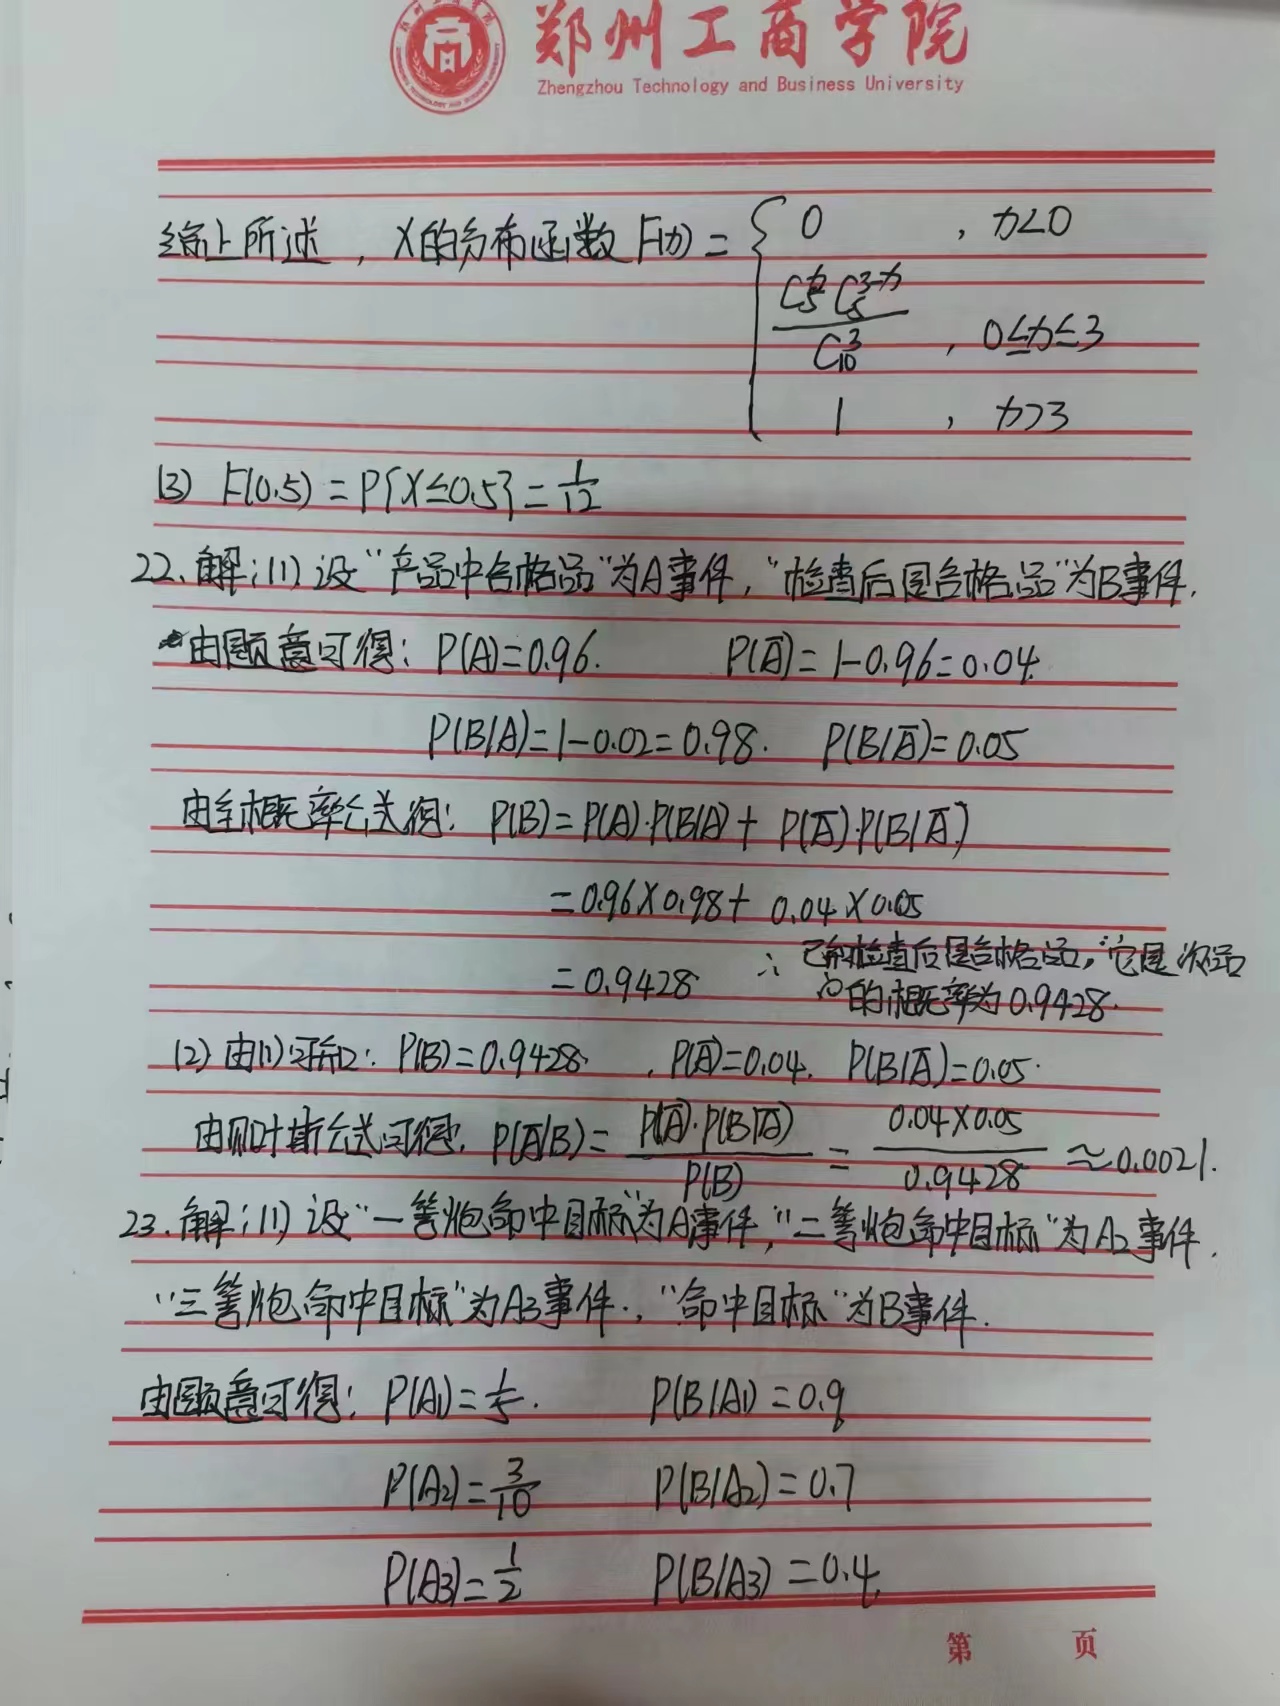 郑州工商学院
Zhengzhou Technology and Business University
综上所述，X的分布函数F(x)= { 0 , x<0
C₅ˣ C₅³⁻ˣ / C₁₀³ , 0≤x≤3
1 , x>3
(3) F(0.5)=P{X≤0.5}=1/12
22、解:(1)设“产品中合格品”为A事件，“检查后是合格品”为B事件.
由题意可得: P(A)=0.96. P(A̅)=1-0.96=0.04.
P(B|A)=1-0.02=0.98. P(B|A̅)=0.05
由全概率公式得: P(B)=P(A)·P(B|A)+P(A̅)·P(B|A̅)
=0.96×0.98+0.04×0.05
=0.9428 ∴ 检查后是合格品，它是次品
的概率为0.9428.
(2) 由(1)可知: P(B)=0.9428. , P(A̅)=0.04. P(B|A̅)=0.05.
由贝叶斯公式可得, P(A̅|B)= P(A̅)·P(B|A̅) / P(B) = 0.04×0.05 / 0.9428 ≈0.0021.
23.解:(1)设“一等炮命中目标”为A事件，“二等炮命中目标”为A₂事件.
“三等炮命中目标”为A₃事件.，“命中目标”为B事件.
由题意可得: P(A₁)=1/5. P(B|A₁)=0.9
P(A₂)=3/10 P(B|A₂)=0.7
P(A₃)=1/2 P(B|A₃)=0.4.
第 页